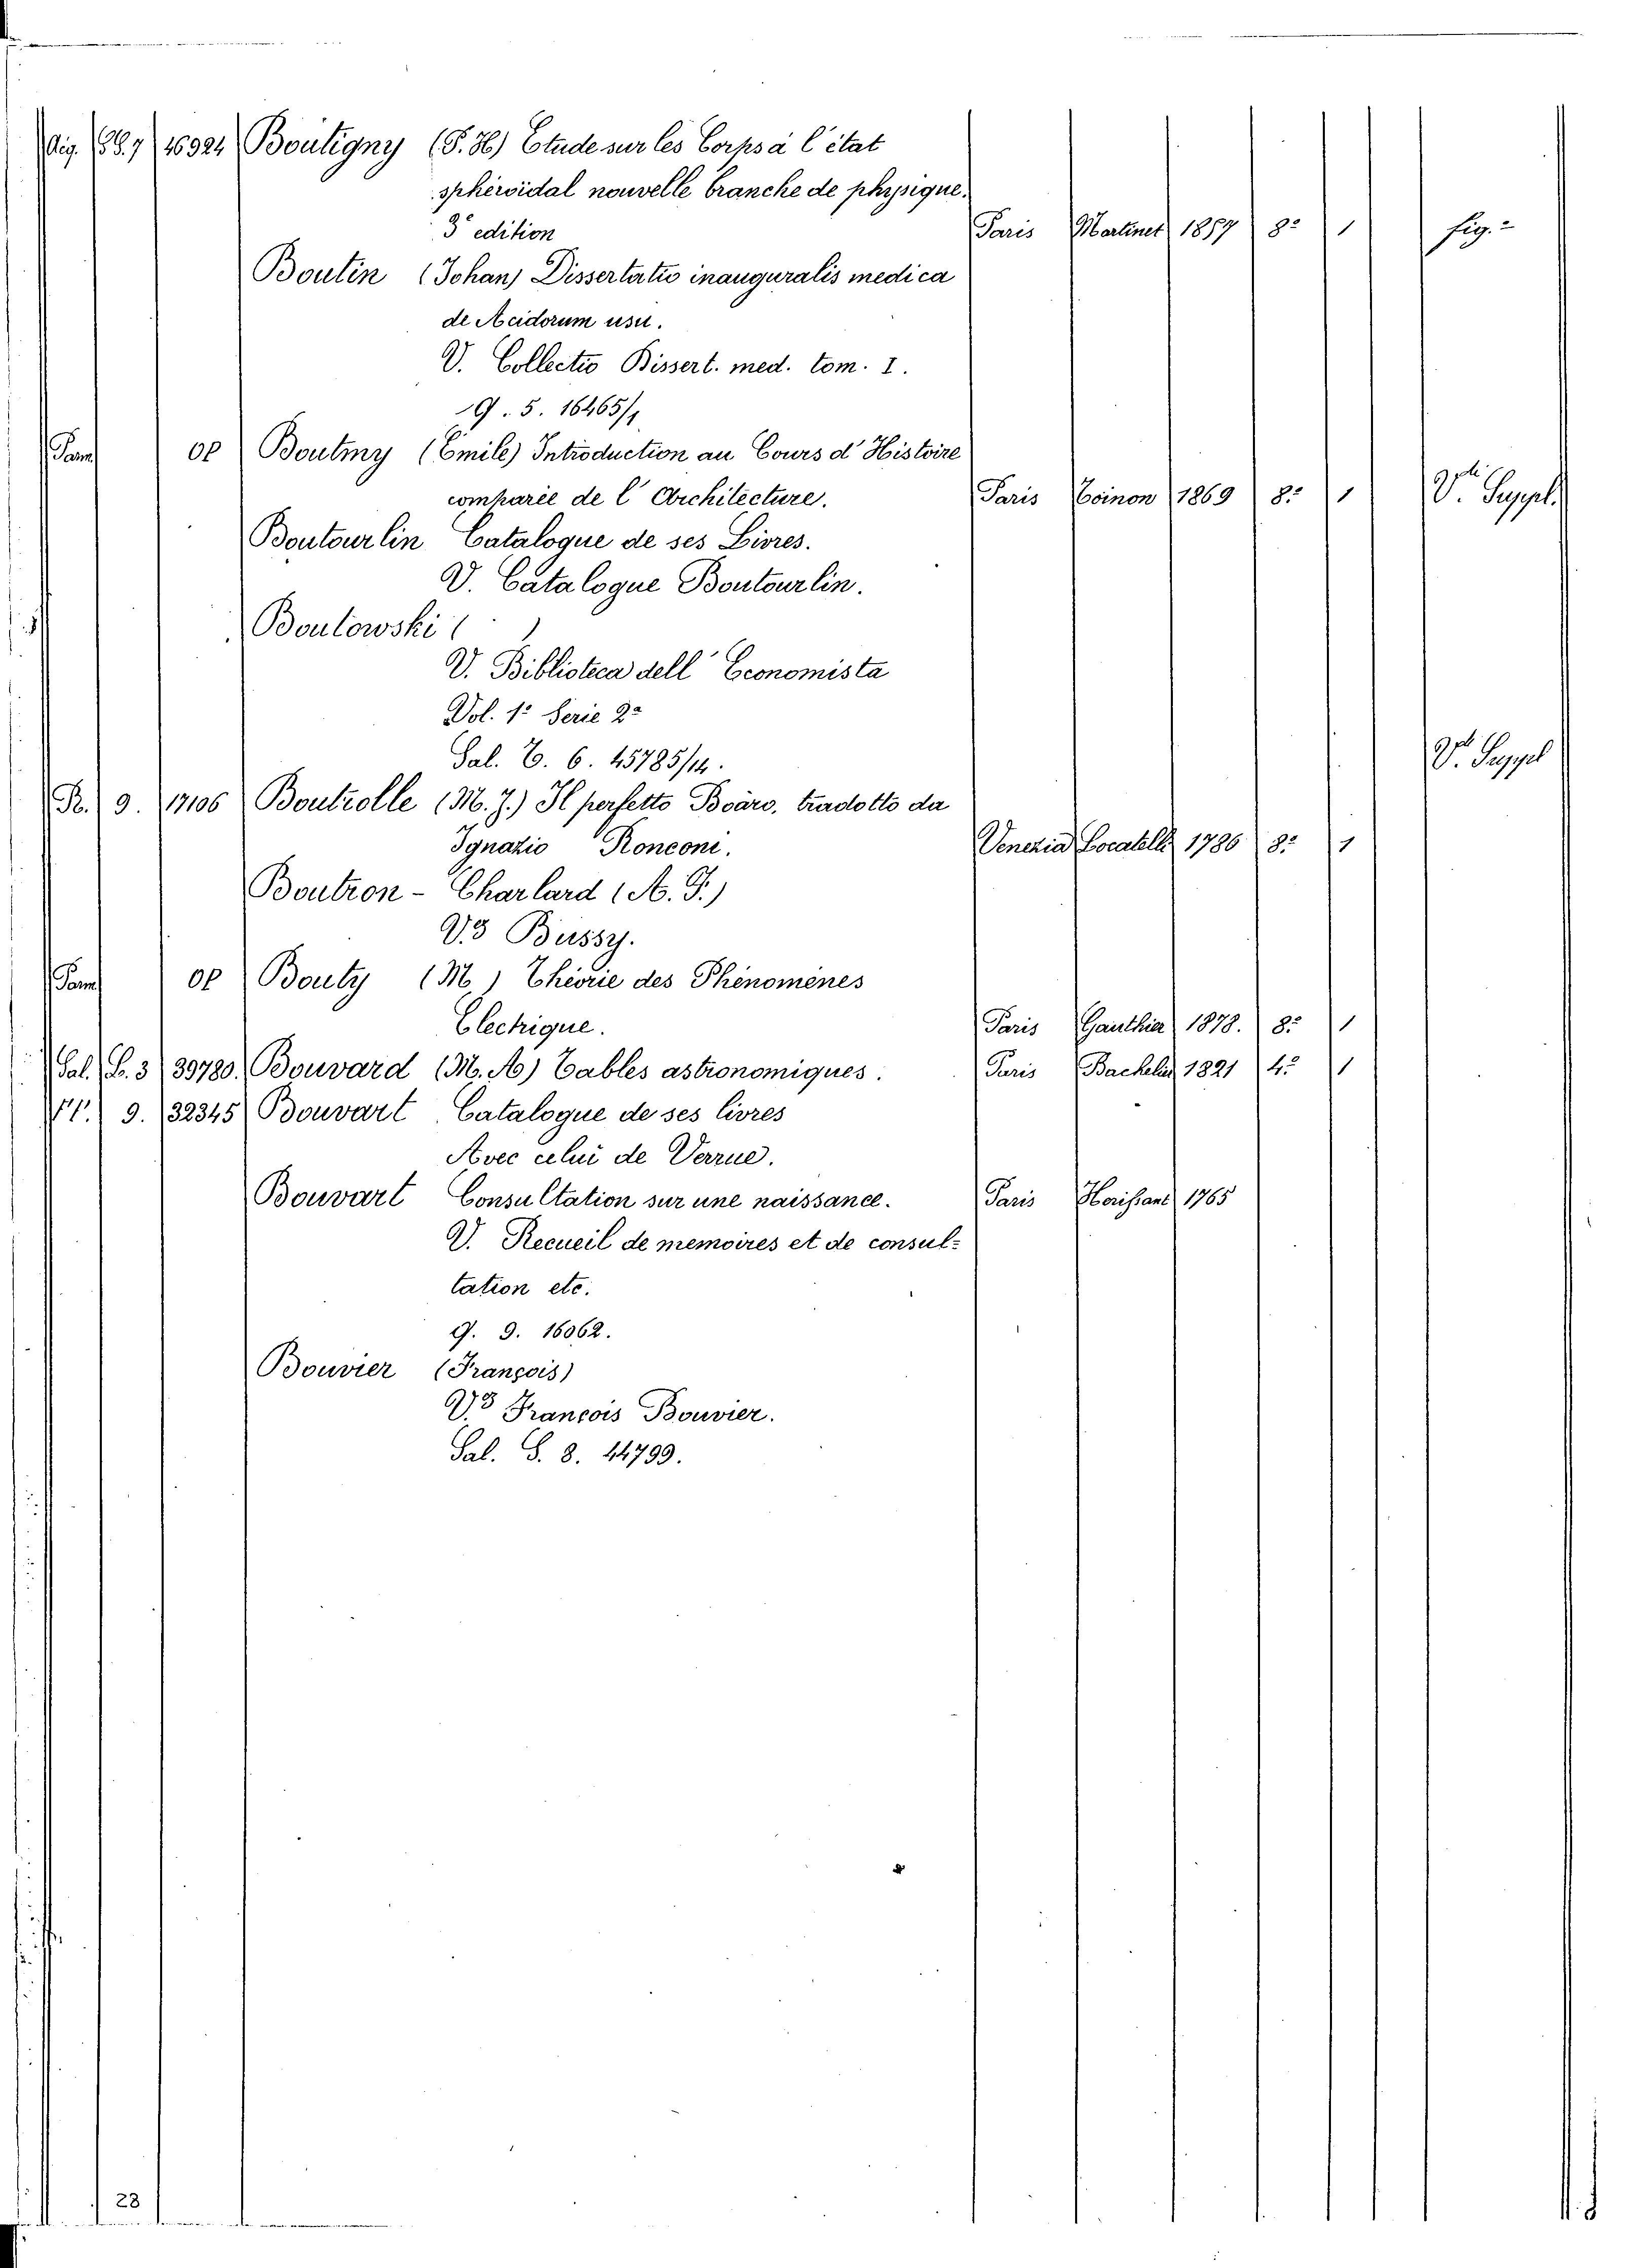 88.7 46924 Boutigny (P. H) Etude sur les Corps à l'état
sphéroidal nouvelle branche de physique.
3e edition Paris Martinet 1857 8º 1 fig.
Boutin (Johan) Dissertatio inauguralis medica
de Acidorum usu.
V. Collectio Dissert. med. tom. I.
9. 5. 16465/1
Pam op Boutmy (Emile) Introduction au Cours d'Histoire
comparée de l'Architecture. Paris Coinon 1869 8º 1 Vdi Suppl.
Boutourlin Catalogue de ses Livres.
V. Catalogue Boutourlin.
Boutowski ( )
V. Biblioteca dell' Economista
Vol. 1º Serie 2ª
Sal. C. 6. 45785/14. Vdi Suppl
R. 9. 17106 Boutrolle (M. J.) Il perfetto Boaro, tradotto da
Ignazio Ronconi. Venezia Locatelli 1786 8º 1
Boutron - Charlard (A. F.)
V. Bussy.
Pam op Bouty (M) Théorie des Phénomènes
Electrique. Paris Gauthier 1878. 8º 1
Sal. B. 3 39780. Bouvard (M. A) Tables astronomiques. Paris Bachelier 1821 4º 1
9. 32345 Bouvart Catalogue de ses livres
Avec celui de Verrue.
Bouvart Consultation sur une naissance. Paris Horissant 1765
V. Recueil de memoires et de consul-
tation etc.
9. 9. 16062.
Bouvier (François)
V. François Bouvier.
Sal. S. 8. 44799.
28